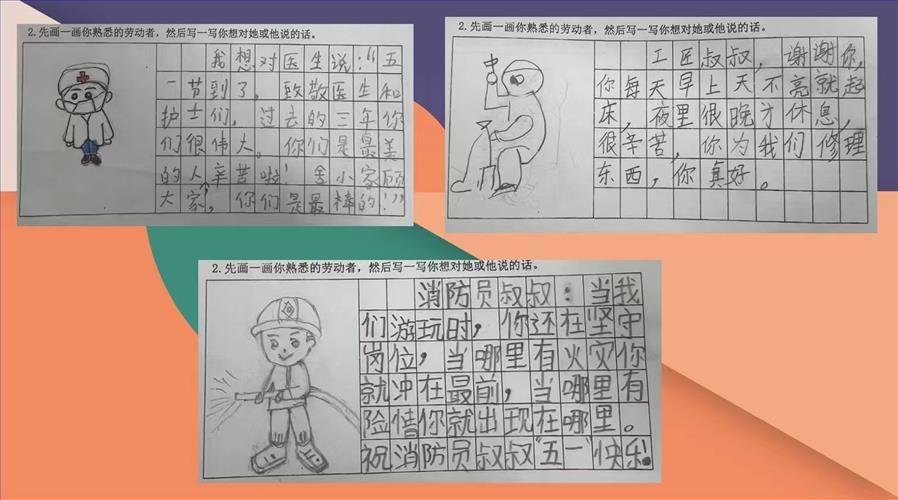 2.先画一画你熟悉的劳动者，然后写一写你想对她或他说的话。
我想对医生说："五
一节到了。致敬医生和
护士们，过去的三年你
们很伟大。你们是最美
的人辛苦啦！舍小家顾
大家，你们是最棒的！"
2.先画一画你熟悉的劳动者，然后写一写你想对她或他说的话。
工匠叔叔，谢谢你，
你每天早上天不亮就起
床，夜里很晚才休息，
很辛苦，你为我们修理
东西，你真好。
2.先画一画你熟悉的劳动者，然后写一写你想对她或他说的话。
消防员叔叔：当我
们游玩时，你还在坚守
岗位，当哪里有火灾你
就冲在最前，当哪里有
险情你就出现在哪里。
祝消防员叔叔"五一"快乐。